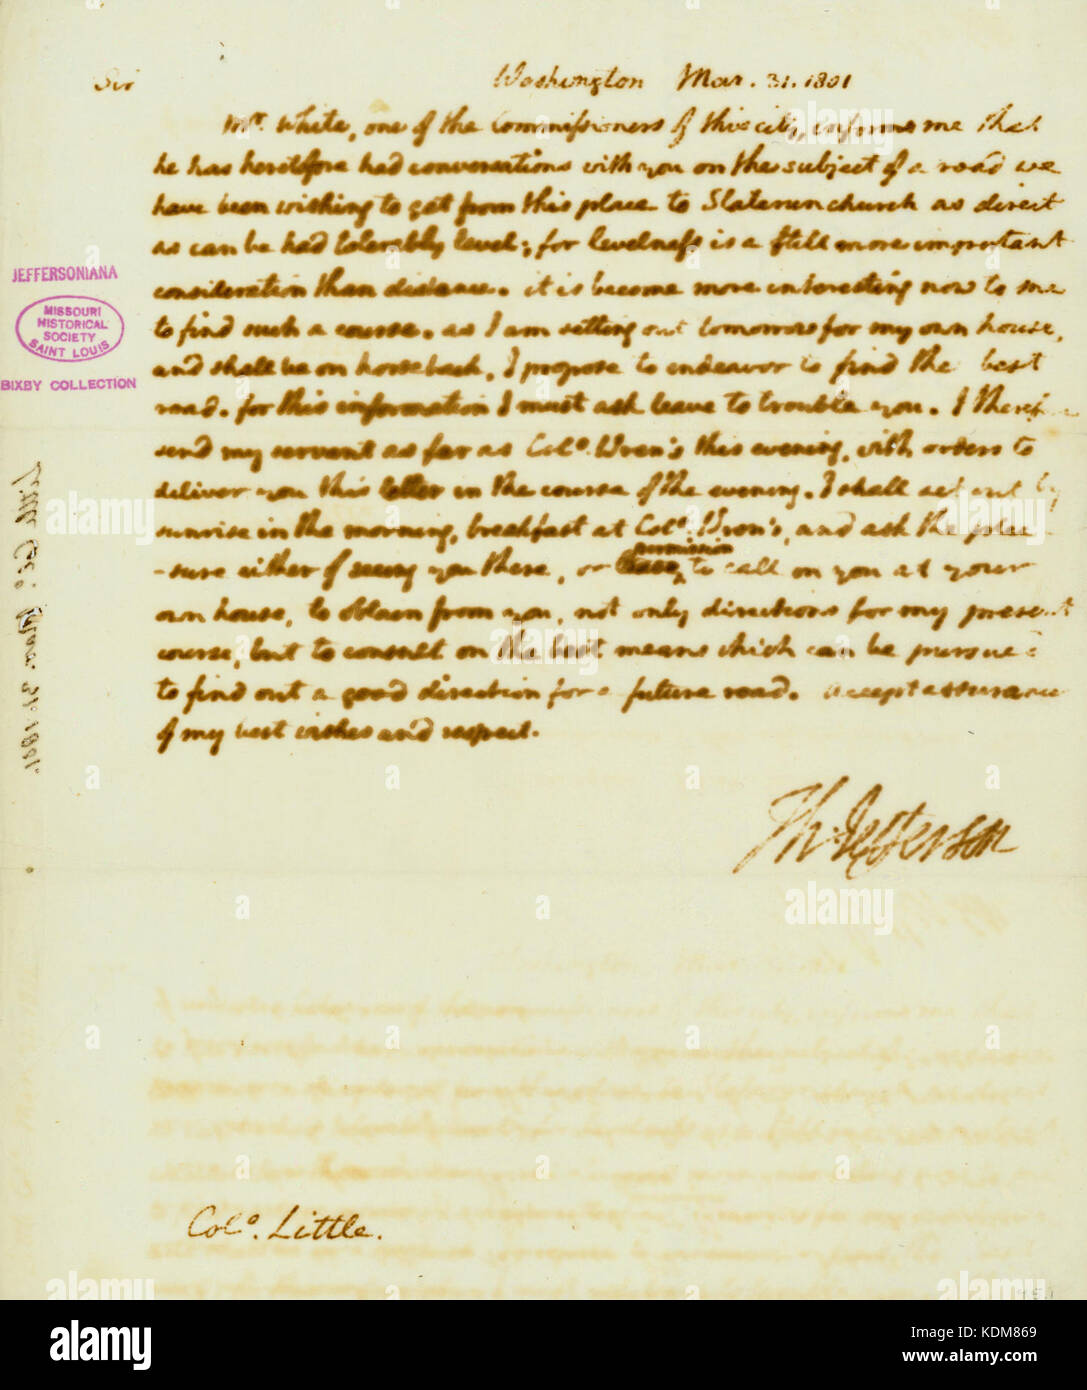 Sir Washington Mar. 31. 1801
Mr. White, one of the Commissioners of this city, informs me that
he has heretofore had conversations with you on the subject of a road we
have been wishing to get from this place to Slaterun church as direct
as can be had tolerably level; for levelness is a still more important
consideration than distance. it is become more interesting now to me
to find such a course. as I am setting out tomorrow for my own house,
and shall be on horseback, I propose to endeavor to find the best
road. for this information I must ask leave to trouble you. I therefore
send my servant as far as Colo. Wren's this evening, with orders to
deliver you this letter in the course of the evening. I shall set out by
sunrise in the morning, breakfast at Colo. Wren's, and ask the plea-
-sure either of seeing you there, or permission to call on you at your
own house, to obtain from you, not only directions for my present
course, but to consult on the best means which can be pursued
to find out a good direction for a future road. Accept assurances
of my best wishes and respect.
Th: Jefferson
Colo. Little.
JEFFERSONIANA
MISSOURI
HISTORICAL
SOCIETY
SAINT LOUIS
BIXBY COLLECTION
Little Colo. Mar. 31. 1801
alamy
Image ID: KDM869
www.alamy.com